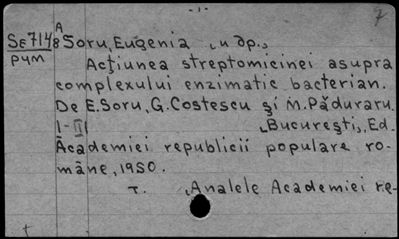 - 1 -
7
A
SE7148 Soru, Eugenia „u др.„
рум
Acţiunea streptomicinei asupra
complexului enzimatic bacterian.
De E. Soru, G. Costescu şi M. Păduraru.
I-II „Bucureşti„, Ed.
Academiei republicii populare ro-
mâne, 1950.
т. „Analele Academiei re-
+